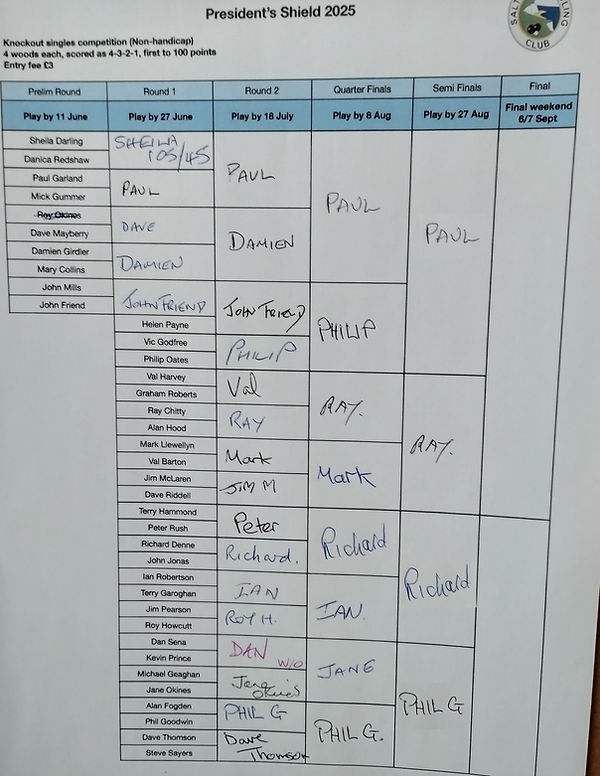 President's Shield 2025
SALT LING
CLUB
Knockout singles competition (Non-handicap)
4 woods each, scored as 4-3-2-1, first to 100 points
Entry fee £3
Prelim Round Round 1 Round 2 Quarter Finals Semi Finals Final
Play by 11 June Play by 27 June Play by 18 July Play by 8 Aug Play by 27 Aug Final weekend
6/7 Sept
Sheila Darling
Danica Redshaw
Paul Garland
Mick Gummer
Roy Okines
Dave Mayberry
Damien Girdler
Mary Collins
John Mills
John Friend
SHEILA
105/45
PAUL
DAVE
DAMIEN
JOHN FRIEND
Helen Payne
Vic Godfree
Philip Oates
Val Harvey
Graham Roberts
Ray Chitty
Alan Hood
Mark Llewellyn
Val Barton
Jim McLaren
Dave Riddell
Terry Hammond
Peter Rush
Richard Denne
John Jonas
Ian Robertson
Terry Garoghan
Jim Pearson
Roy Howcutt
Dan Sena
Kevin Prince
Michael Geaghan
Jane Okines
Alan Fogden
Phil Goodwin
Dave Thomson
Steve Sayers
PAUL
DAMIEN
JOHN FRIEND
PHILIP
Val
RAY
Mark
JIM M
Peter
Richard.
IAN
ROY H.
DAN W/O
Jane
Okines
PHIL G
Dave
Thomson
PAUL
PHILIP
RAY.
Mark
Richard
IAN.
JANE
PHIL G.
PAUL
RAY.
Richard
PHIL G